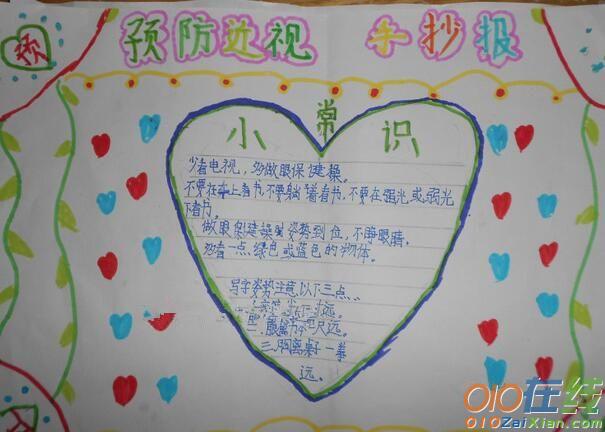 预
预防近视 手抄报
小常识
少看电视，多做眼保健操。
不要在车上看书，不要躺着看书，不要在强光或弱光
下看书。
做眼保健操时姿势到位，不睁眼睛。
多看一点绿色或蓝色的物体。
写字姿势注意以下三点：
远。
二、眼离书一尺远。
三、胸离桌子一拳
远。
010在线
010ZaiXian.com